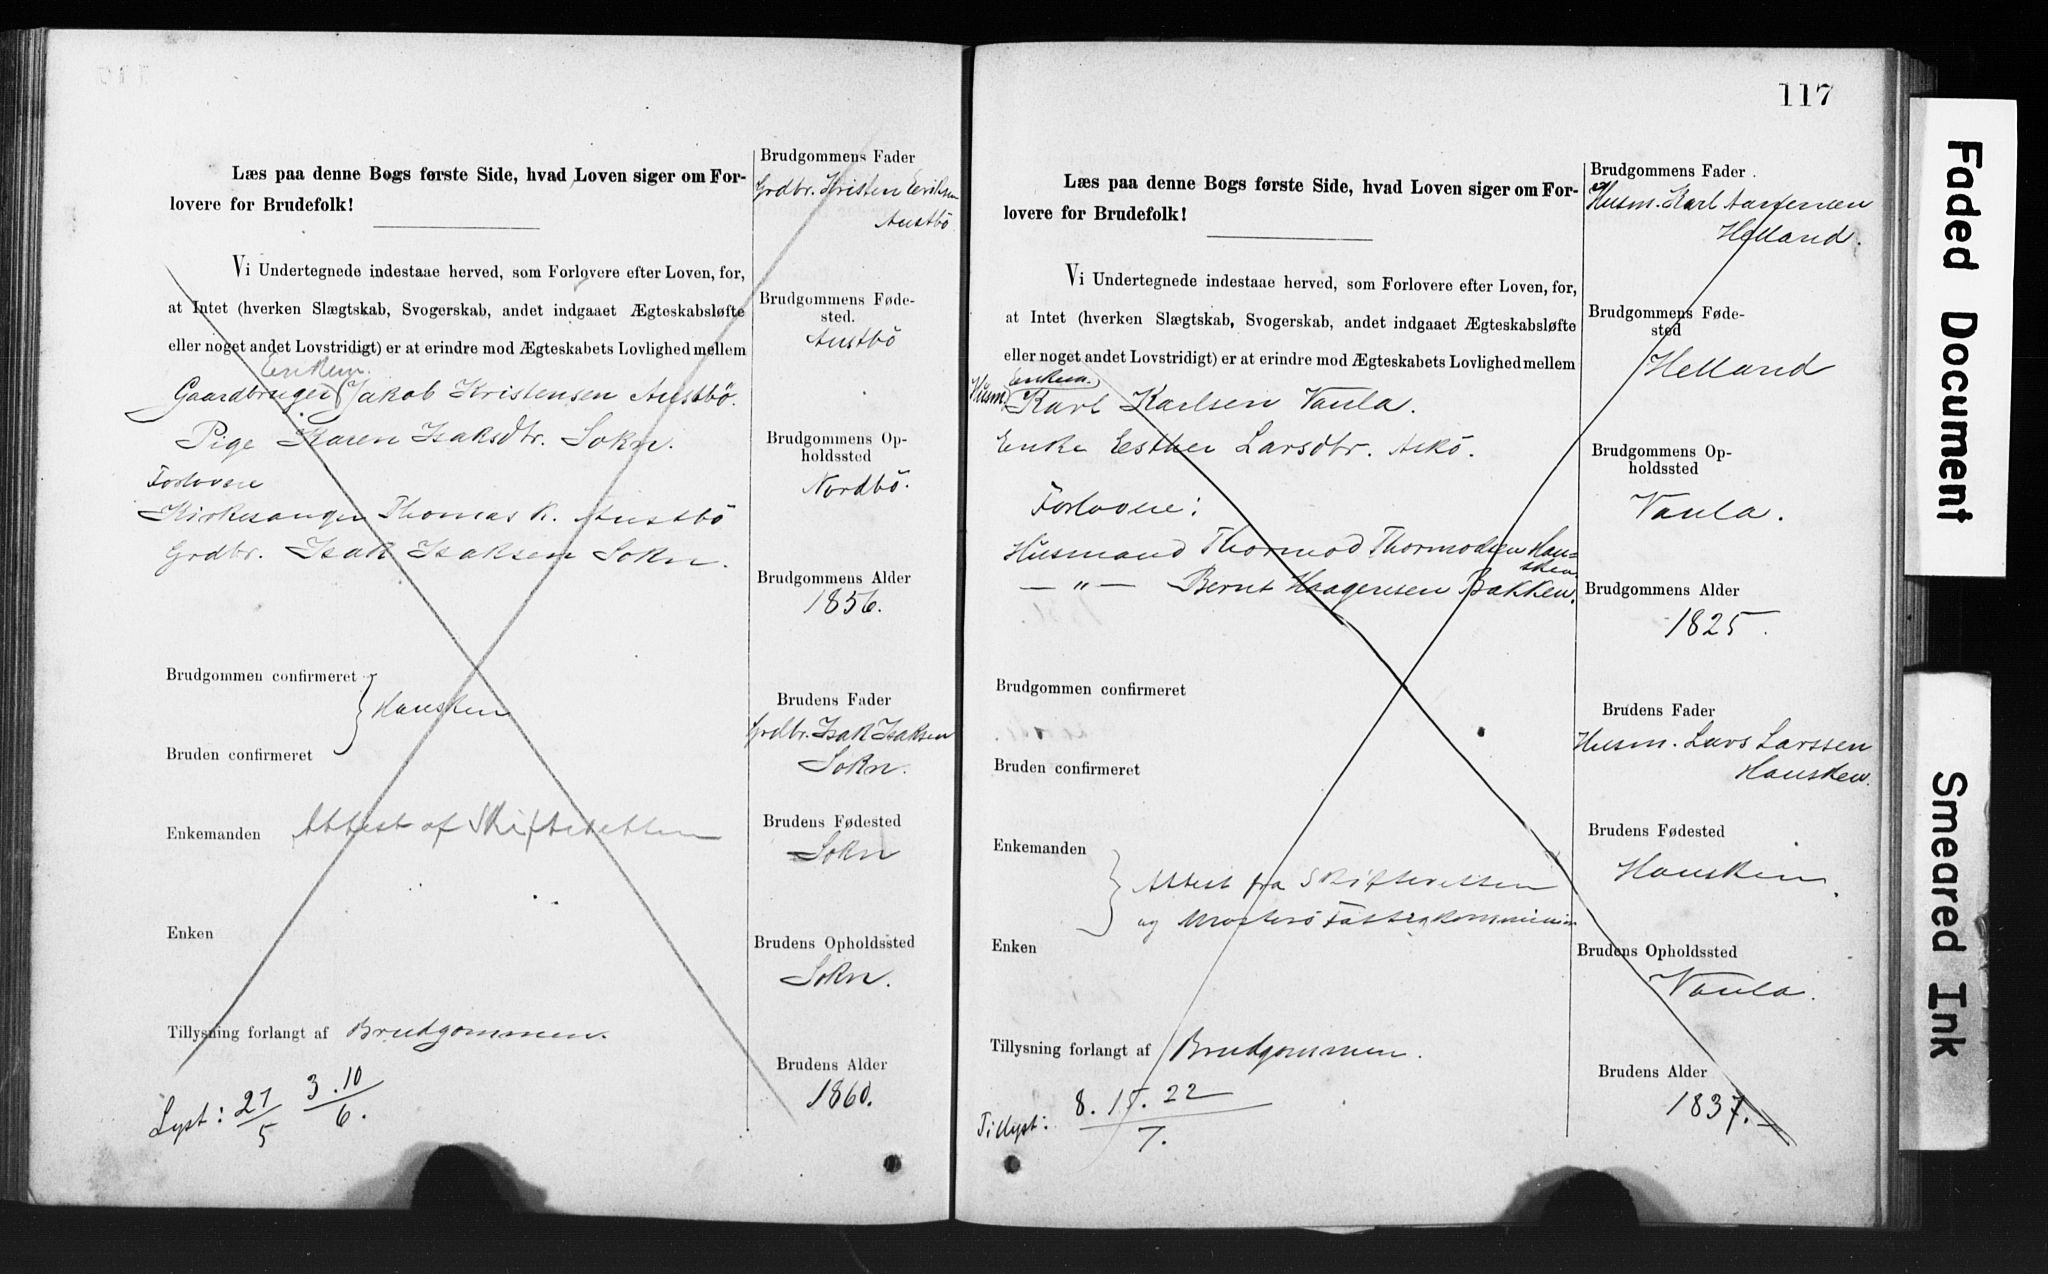 Læs paa denne Bogs første Side, hvad Loven siger om For-
lovere for Brudefolk!
Vi Undertegnede indestaae herved, som Forlovere efter Loven, for,
at Intet (hverken Slægtskab, Svogerskab, andet indgaaet Ægteskabsløfte
eller noget andet Lovstridigt) er at erindre mod Ægteskabets Lovlighed mellem
Enkem.
Gaardbruger Jakob Kristensen Austbö.
Pige Karen Isaksdtr. Sokn.
Forlovere
Kirkesanger Thomas K. Austbö
Grdbr. Isak Isaksen Sokn.
Brudgommen confirmeret
Hausken
Bruden confirmeret
Enkemanden Attest af Skifteretten
Enken
Tillysning forlangt af Brudgommen.
Lyst: 27/5 3.10/6.
Brudgommens Fader
Grdbr. Kristen Eriksen
Austbö
Brudgommens Føde-
sted.
Austbö
Brudgommens Op-
holdssted
Nordbö.
Brudgommens Alder
1856.
Brudens Fader
Grdbr. Isak Isaksen
Sokn.
Brudens Fødested
Sokn
Brudens Opholdssted
Sokn.
Brudens Alder
1860.
117
Læs paa denne Bogs første Side, hvad Loven siger om For-
lovere for Brudefolk!
Vi Undertegnede indestaae herved, som Forlovere efter Loven, for,
at Intet (hverken Slægtskab, Svogerskab, andet indgaaet Ægteskabsløfte
eller noget andet Lovstridigt) er at erindre mod Ægteskabets Lovlighed mellem
Enkem.
Husm. Karl Karlsen Vaula.
Enke Esther Larsdtr. Askö.
Forlovere:
Husmand Thormod Thormodsen Hau-
sken
— „ — Bernt Haagensen Bakken.
Brudgommen confirmeret
Bruden confirmeret
Enkemanden
Attest fra Skifteretten
og Mosterö Fattigkommission
Enken
Tillysning forlangt af Brudgommen.
Tillyst: 8. 15. 22/7.
Brudgommens Fader
Husm. Karl
Helland.
Brudgommens Føde-
sted
Helland
Brudgommens Op-
holdssted
Vaula.
Brudgommens Alder
1825.
Brudens Fader
Husm. Lars Larssen
Hausken.
Brudens Fødested
Hausken.
Brudens Opholdssted
Vaula.
Brudens Alder
1837.
Faded Document
Smeared Ink